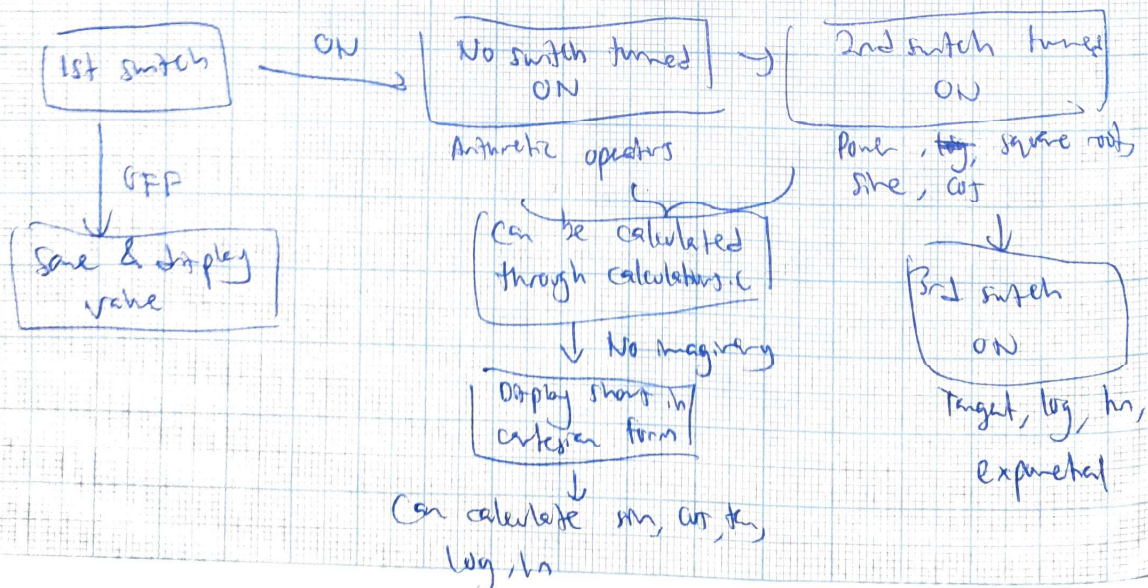 1st switch
ON
No switch turned
ON
2nd switch turned
ON
Arithmetic operators
Power, log, square roots,
sine, cos
OFF
Save & display
value
Can be calculated
through calculators.c
3rd switch
ON
No imaginary
Display shows in
cartesian form
Tangent, log, ln,
exponential
Can calculate sin, cos, tan,
log, ln